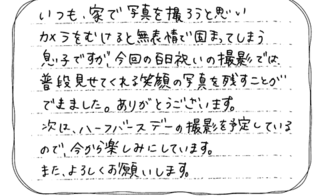 いつも、家で写真を撮ろうと思い
カメラをむけると無表情で固まってしまう
息子ですが、今回の百日祝いの撮影では、
普段見せてくれる笑顔の写真を残すことが
できました。ありがとうございます。
次は、ハーフバースデーの撮影を予定している
ので、今から楽しみにしています。
また、よろしくお願いします。